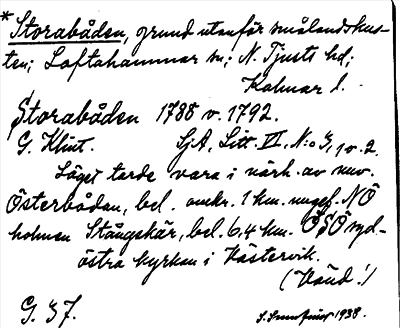 * Storabåden, grund utanför smålandskus-
ten; Loftahammar sn; N. Tjusts hd;
Kalmar l.
Storabåden 1788 v. 1792.
G. Klint. SjA, Litt. VI, N:o 3, 1 o. 2.
Läget torde vara i närh. av nuv.
Österbådan, bel. omkr. 1 km. ungef. NÖ
holmen Stångskär, bel. 6,4 km. ÖSÖ syd-
östra kyrkan i Västervik.
(Vänd!)
G. 37. 1938.